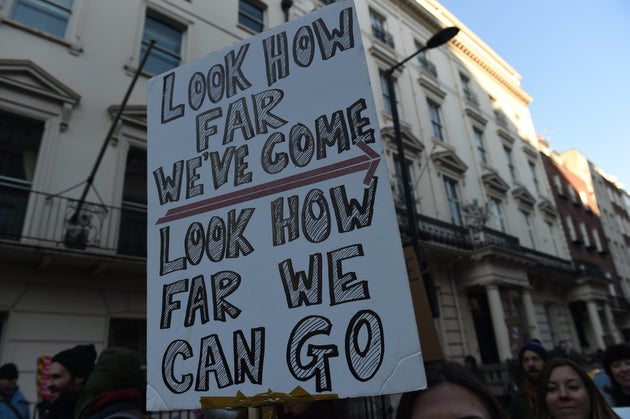 LOOK HOW
FAR
WE'VE COME
LOOK HOW
FAR WE
CAN GO